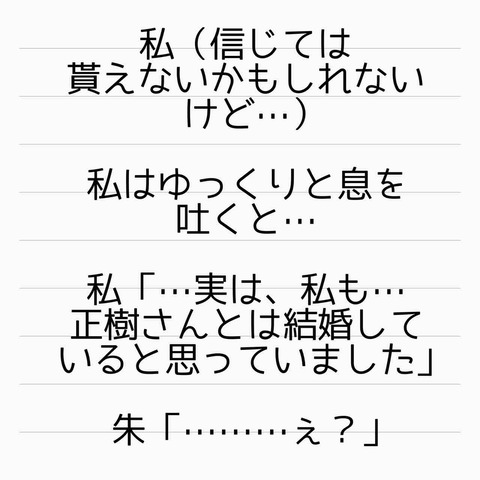 私（信じては
貰えないかもしれない
けど…）
私はゆっくりと息を
吐くと…
私「…実は、私も…
正樹さんとは結婚して
いると思っていました」
朱「………ぇ？」